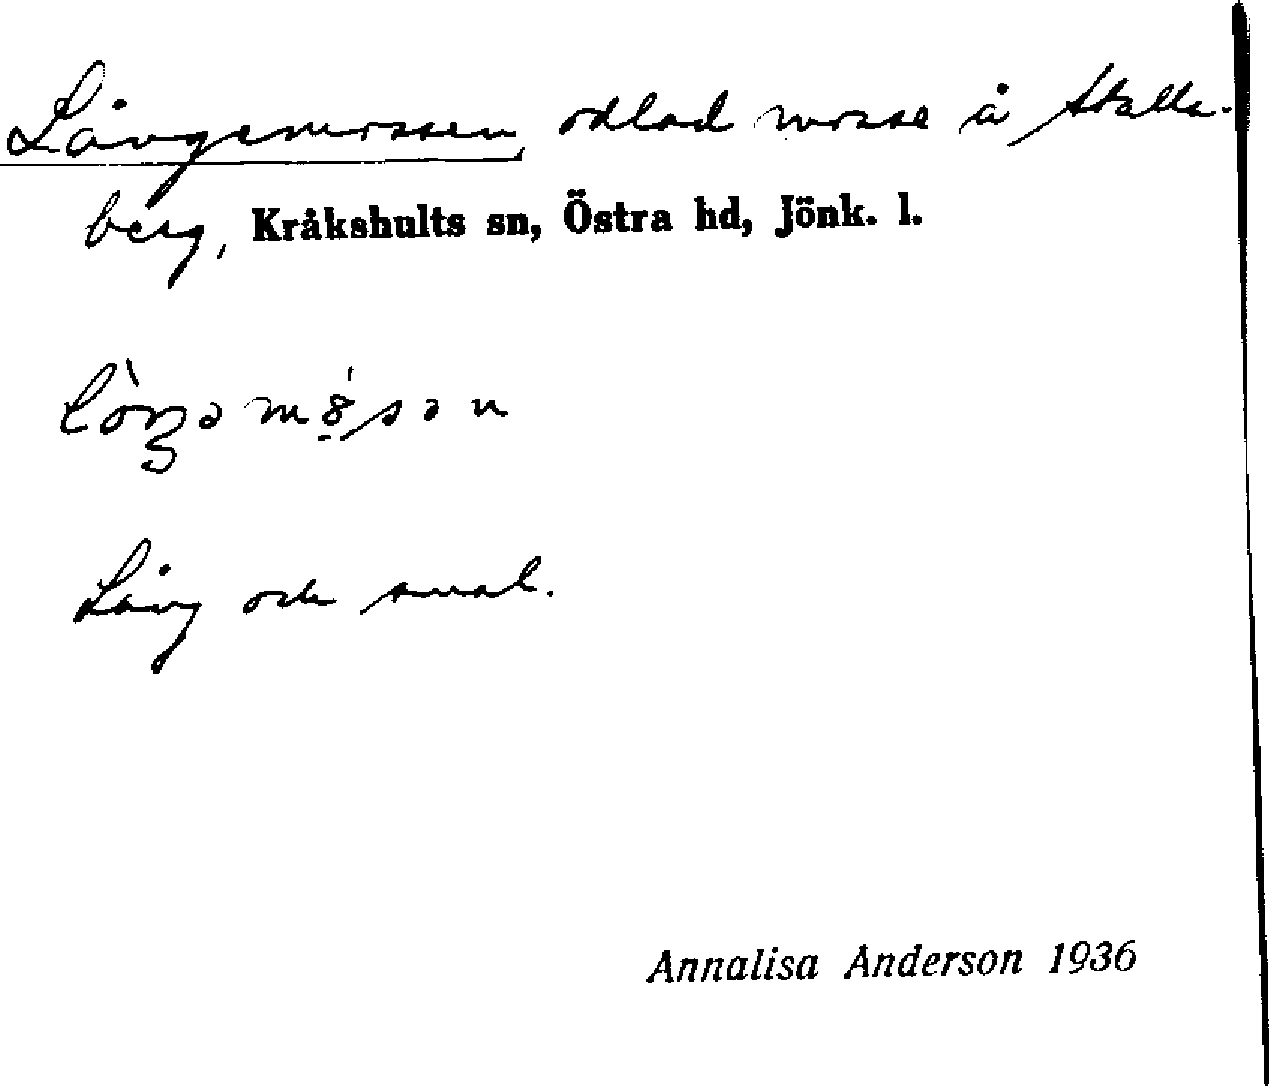 Långemossen, odlad mosse å Skälla-
berg, Kråkshults sn, Östra hd, Jönk. l.
Lång och smal.
Annalisa Anderson 1936